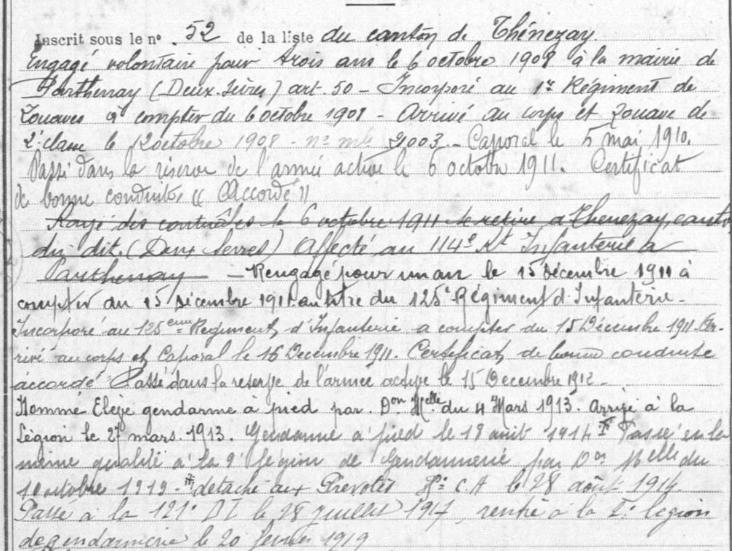 Inscrit sous le n° 52 de la liste du canton de Thénezay.
Engagé volontaire pour trois ans le 6 octobre 1908 à la mairie de
Parthenay (Deux-Sèvres) art. 50 - Incorporé au 1er Régiment de
Zouaves à compter du 6 octobre 1908 - Arrivé au corps et Zouave de
2e classe le 12 octobre 1908 - n° mle 9003 - Caporal le 5 mai 1910.
Passé dans la réserve de l'armée active le 6 octobre 1911. Certificat
de bonne conduite « Accordé »
Rayé des contrôles le 6 octobre 1911 se retire à Thenezay, canton
du dit. (Deux Sevres) Affecté au 114e Rt Infanterie à
Parthenay - Rengagé pour un an le 15 Décembre 1911 à
compter du 15 Décembre 1911 au titre du 125e Régiment d'Infanterie -
Incorporé au 125eme Régiment d'Infanterie a compter du 15 Décembre 1911. Ar-
rivé au corps et Caporal le 16 Décembre 1911. Certificat de bonne conduite
accordé. Passé dans la reserve de l'armée active le 15 Decembre 1912 -
Nommé Elève gendarme à pied par Don Melle du 4 Mars 1913. Arrivé à la
Légion le 27 mars 1913. Gendarme à pied le 18 août 1914 Passé en la
même qualité à la 9e Légion de Gendarmerie par Don Melle du
octobre 1919 - détaché aux Prévotés C A le 28 août 1914.
Passé à la 121e DI le 28 juillet 1917, rentré à la légion
de gendarmerie le 20 février 1919